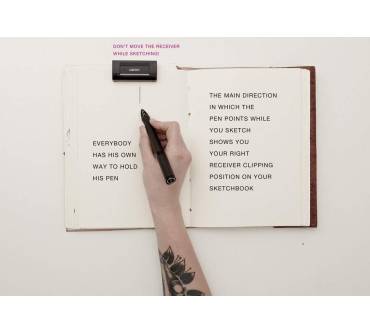 DON'T MOVE THE RECEIVER
WHILE SKETCHING!
EVERYBODY
HAS HIS OWN
WAY TO HOLD
HIS PEN
THE MAIN DIRECTION
IN WHICH THE
PEN POINTS WHILE
YOU SKETCH
SHOWS YOU
YOUR RIGHT
RECEIVER CLIPPING
POSITION ON YOUR
SKETCHBOOK